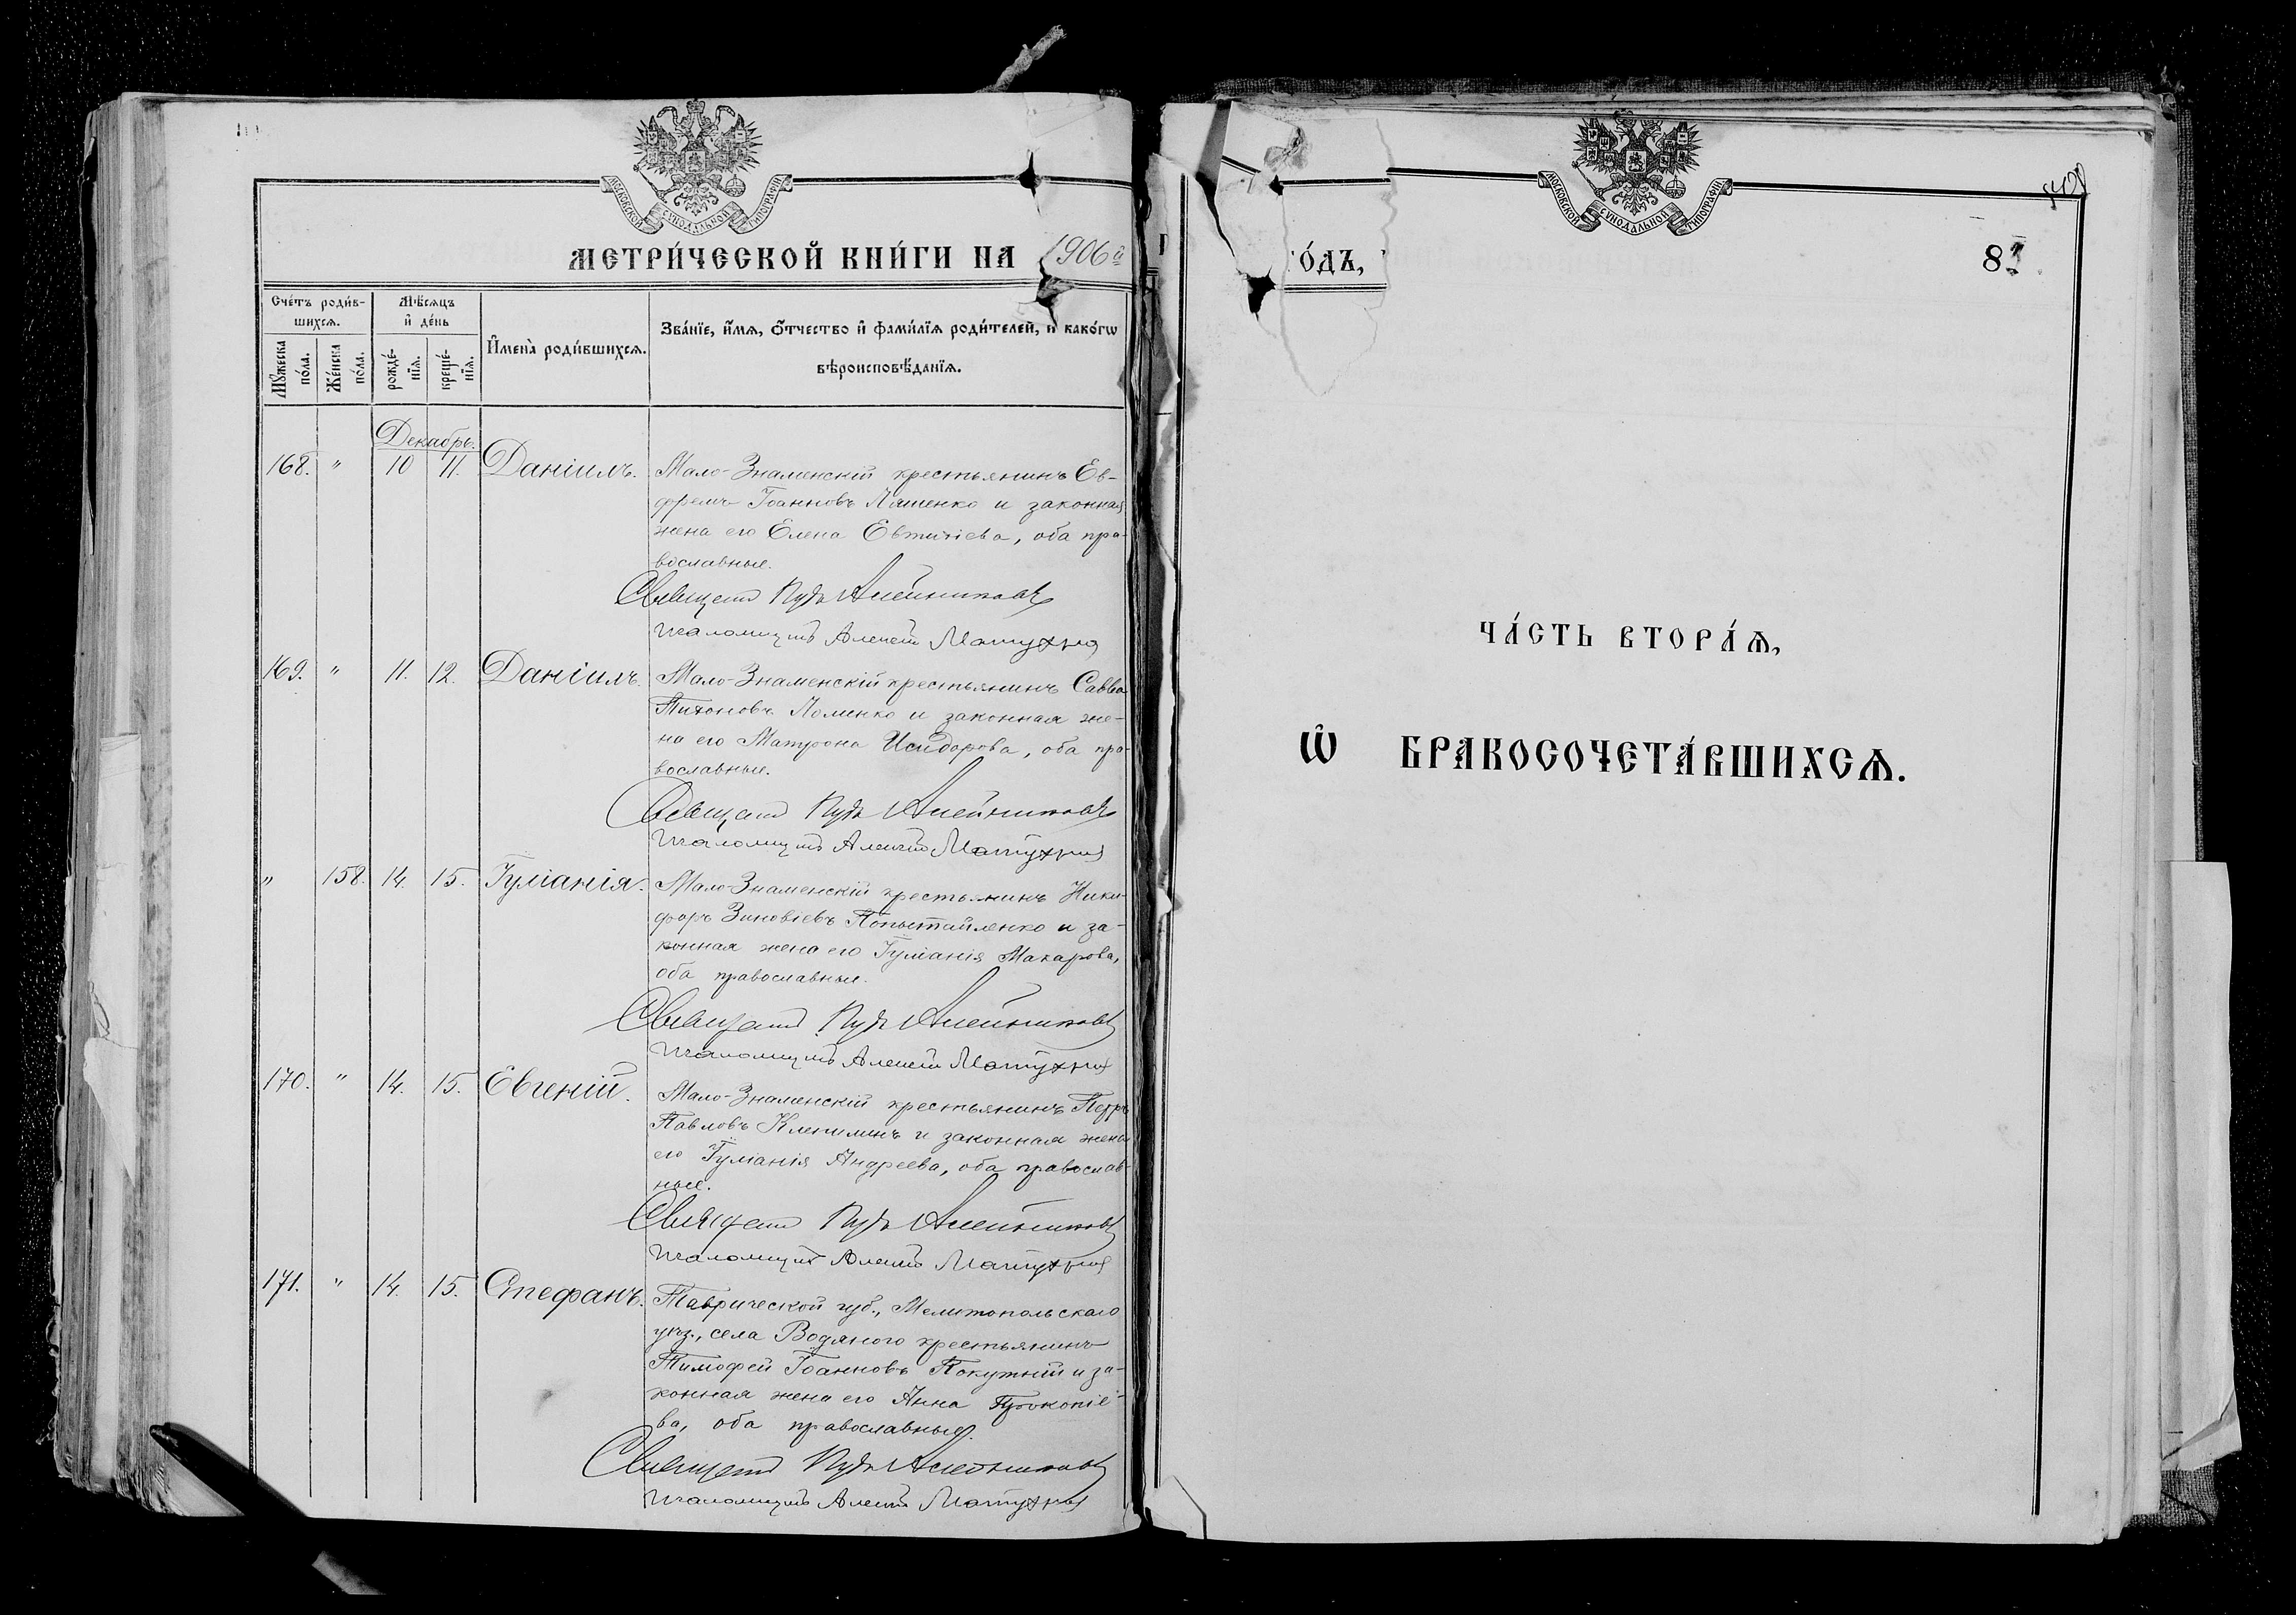 МОСКОВСКОЙ СѴНОДАЛЬНОЙ ТИПОГРАФІИ
МЕТРИ́ЧЕСКОЙ КНИ́ГИ НА 1906й
Сче́тъ роди́в-
шихсѧ.
Мꙋ́жеска по́ла.
Же́нска по́ла.
Мѣ́сѧцъ
и҆ де́нь
рожде́-
нїѧ.
креще́-
нїѧ.
И҆мена̀ роди́вшихсѧ.
Зва́нїе, и҆́мѧ, ѻ҆́тчество и҆ фами́лїѧ роди́телей, и҆ како́гѡ
вѣроисповѣ́данїѧ.
Декабрь.
168. " 10 11. Даніилъ. Мало-Знаменскій крестьянинъ Ев-
фремъ Іоанновъ Ляшенко и законная
жена его Елена Евтихіева, оба пра-
вославные.
Священ Пудъ Алейниковъ
Псаломщикъ Алексей Матухно
169. " 11. 12. Даніилъ. Мало-Знаменскій крестьянинъ Савва
Тихоновъ Хоменко и законная же-
на его Матрона Исидорова, оба пра-
вославные.
Священ Пудъ Алейниковъ
Псаломщикъ Алексей Матухно
" 158. 14. 15. Іуліанія. Мало-Знаменскій крестьянинъ Ники-
форъ Зиновіевъ Копытайленко и за-
конная жена его Іуліанія Макарова,
оба православные.
Священ Пудъ Алейниковъ
Псаломщикъ Алексей Матухно
170. " 14. 15. Евгеній. Мало-Знаменскій крестьянинъ Петръ
Павловъ Клепилинъ и законная жена
его Іуліанія Андреева, оба православ-
ные.
Священ Пудъ Алейниковъ
Псаломщикъ Алексей Матухно
171. " 14. 15. Стефанъ. Таврической губ., Мелитопольскаго
уѣз., села Водяного крестьянинъ
Тимофей Іоанновъ Покутній и за-
конная жена его Анна Прокопіе-
ва, оба православные.
Священ Пудъ Алейниковъ
Псаломщикъ Алексей Матухно
МОСКОВСКОЙ СѴНОДАЛЬНОЙ ТИПОГРАФІИ
О́ДЪ,
ЧА́СТЬ ВТОРА́Ѧ,
Ѡ҆ БРАКОСОЧЕТА́ВШИХСѦ.